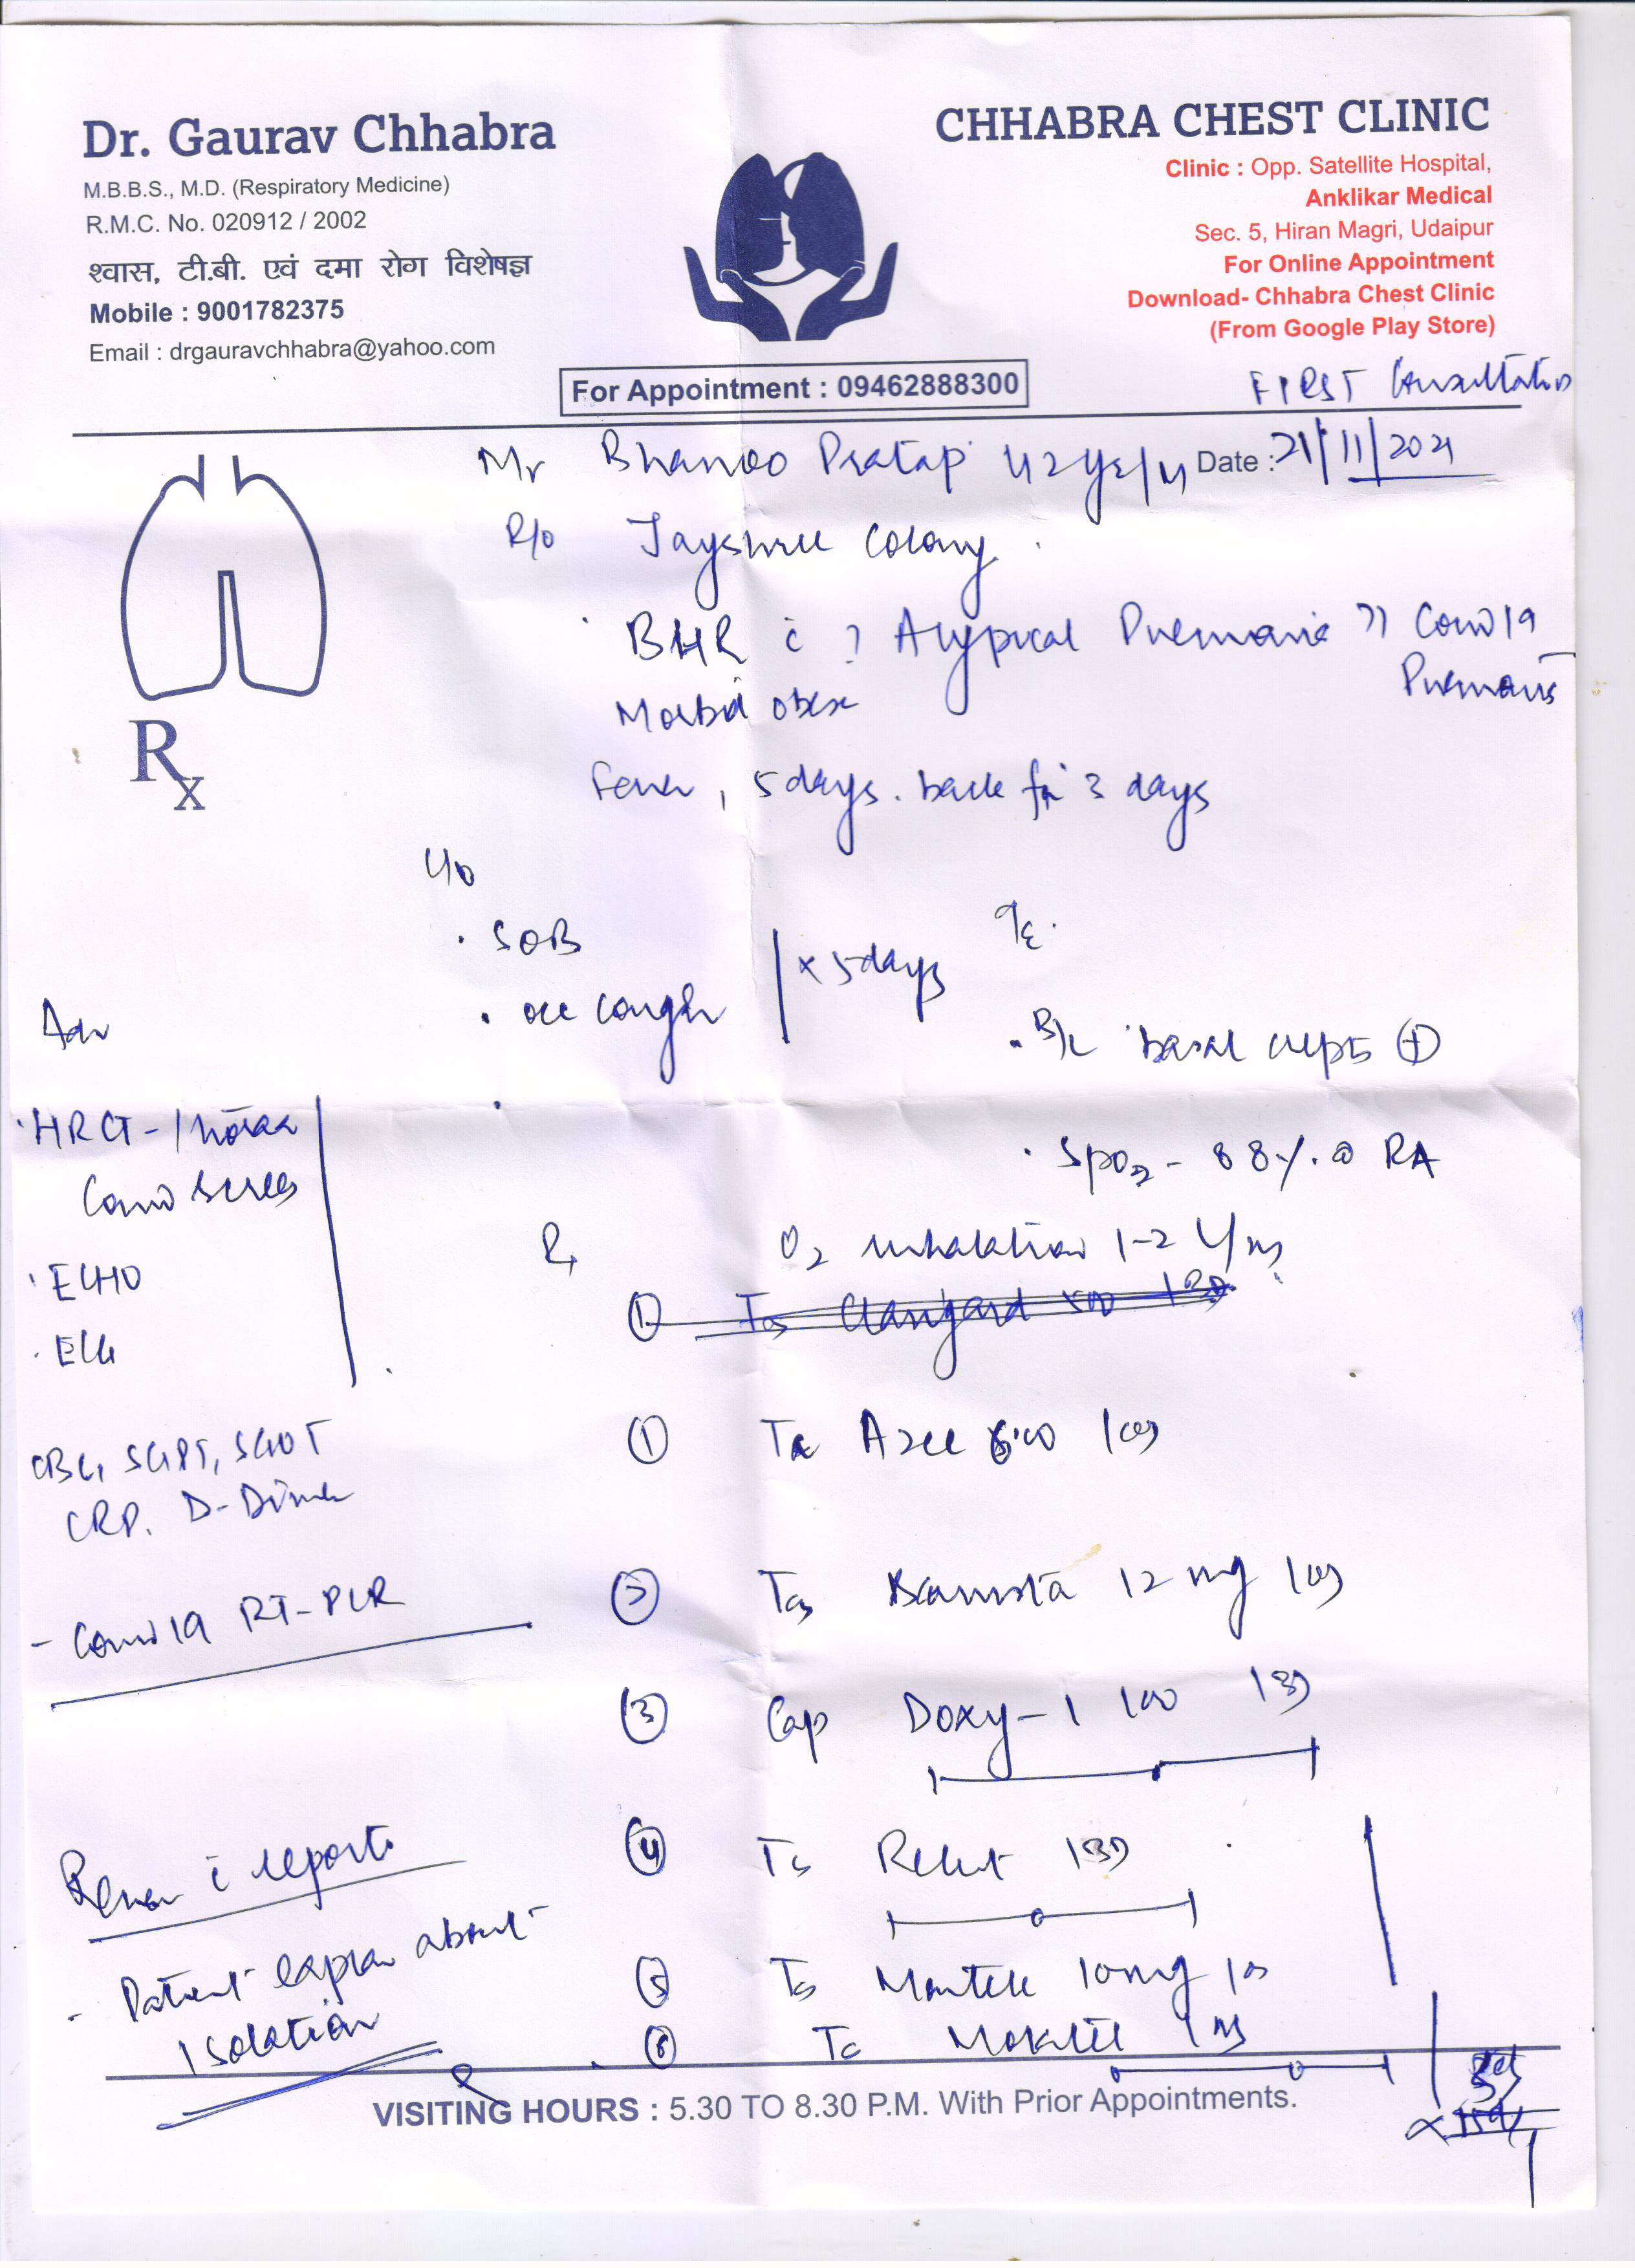 Dr. Gaurav Chhabra
M.B.B.S., M.D. (Respiratory Medicine)
R.M.C. No. 020912 / 2002
श्वास, टी.बी. एवं दमा रोग विशेषज्ञ
Mobile : 9001782375
Email : drgauravchhabra@yahoo.com
CHHABRA CHEST CLINIC
Clinic : Opp. Satellite Hospital,
Anklikar Medical
Sec. 5, Hiran Magri, Udaipur
For Online Appointment
Download- Chhabra Chest Clinic
(From Google Play Store)
For Appointment : 09462888300
FIRST Consultation
Mr Bhanoo Pratap 42 yrs/M Date : 21/11/2021
R/o Jayshree Colony
BHR c ? Atypical Pneumonia ?? Covid 19
Pneumonia
Morbid obese
Rx
Fever, 5 days back for 3 days
C/o
SOB
occ cough
x 5 days
O/E
B/L basal creps +
SpO2 - 88 % @ RA
Adv
HRCT - Thorax
Covid Screen
ECHO
ECG
CBC, SGPT, SGOT
CRP, D-Dimer
- Covid 19 RT-PCR
Review c reports
- Patient explain about
Isolation
Rx O2 inhalation 1-2 L/m
① Tab 500
① Tab Azee 500 1 OD
② Tab 12 mg 1 OD
③ Cap Doxy-1 100 1 BD
④ Tab 1 BD
⑤ Tab 10mg 1
⑥ Tab
VISITING HOURS : 5.30 TO 8.30 P.M. With Prior Appointments.